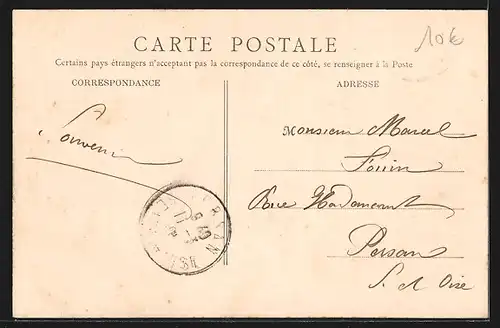 10€
CARTE POSTALE
Certains pays étrangers n'acceptant pas la correspondance de ce côté, se renseigner à la Poste
CORRESPONDANCE
ADRESSE
Souvenir
Monsieur Marcel
Rue
Persan
S. et Oise
PERSAN